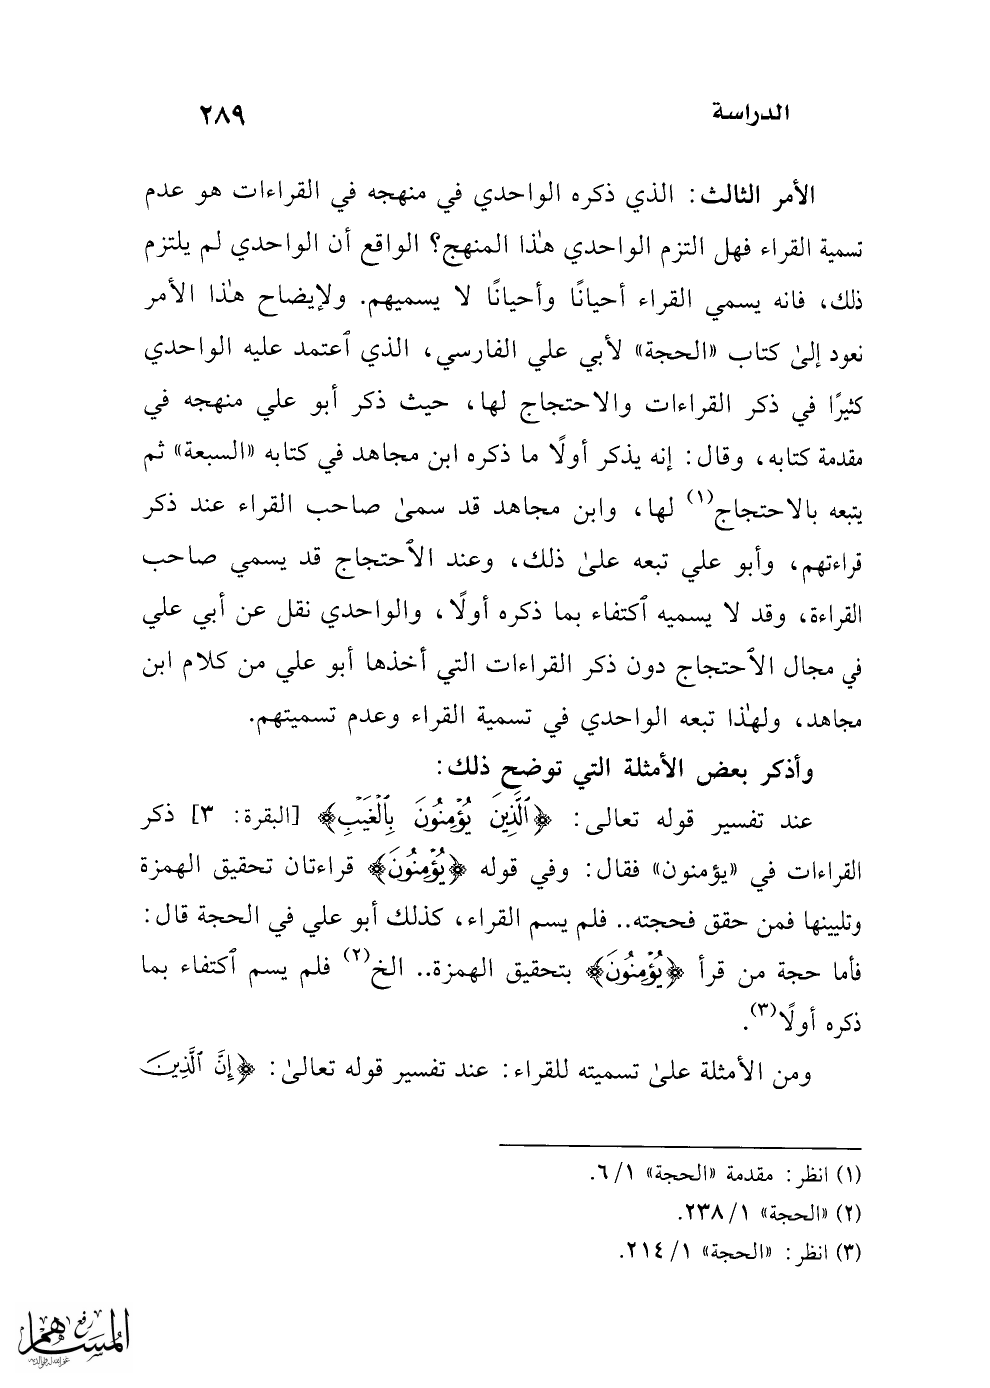 الدراسة ٢٨٩
الأمر الثالث: الذي ذكره الواحدي في منهجه في القراءات هو عدم
تسمية القراء فهل التزم الواحدي هٰذا المنهج؟ الواقع أن الواحدي لم يلتزم
ذلك، فانه يسمي القراء أحيانًا وأحيانًا لا يسميهم. ولإيضاح هٰذا الأمر
نعود إلىٰ كتاب «الحجة» لأبي علي الفارسي، الذي ٱعتمد عليه الواحدي
كثيرًا في ذكر القراءات والاحتجاج لها، حيث ذكر أبو علي منهجه في
مقدمة كتابه، وقال: إنه يذكر أولًا ما ذكره ابن مجاهد في كتابه «السبعة» ثم
يتبعه بالاحتجاج(١) لها، وابن مجاهد قد سمىٰ صاحب القراء عند ذكر
قراءتهم، وأبو علي تبعه علىٰ ذلك، وعند الٱحتجاج قد يسمي صاحب
القراءة، وقد لا يسميه ٱكتفاء بما ذكره أولًا، والواحدي نقل عن أبي علي
في مجال الٱحتجاج دون ذكر القراءات التي أخذها أبو علي من كلام ابن
مجاهد، ولهٰذا تبعه الواحدي في تسمية القراء وعدم تسميتهم.
وأذكر بعض الأمثلة التي توضح ذلك:
عند تفسير قوله تعالى: ﴿ٱلَّذِينَ يُؤۡمِنُونَ بِٱلۡغَيۡبِ﴾ [البقرة: ٣] ذكر
القراءات في «يؤمنون» فقال: وفي قوله ﴿يُؤۡمِنُونَ﴾ قراءتان تحقيق الهمزة
وتليينها فمن حقق فحجته.. فلم يسم القراء، كذلك أبو علي في الحجة قال:
فأما حجة من قرأ ﴿يُؤۡمِنُونَ﴾ بتحقيق الهمزة.. الخ(٢) فلم يسم ٱكتفاء بما
ذكره أولًا(٣).
ومن الأمثلة علىٰ تسميته للقراء: عند تفسير قوله تعالىٰ: ﴿إِنَّ ٱلَّذِينَ
(١) انظر: مقدمة «الحجة» ١/ ٦.
(٢) «الحجة» ١/ ٢٣٨.
(٣) انظر: «الحجة» ١/ ٢١٤.
رفع
المساهم